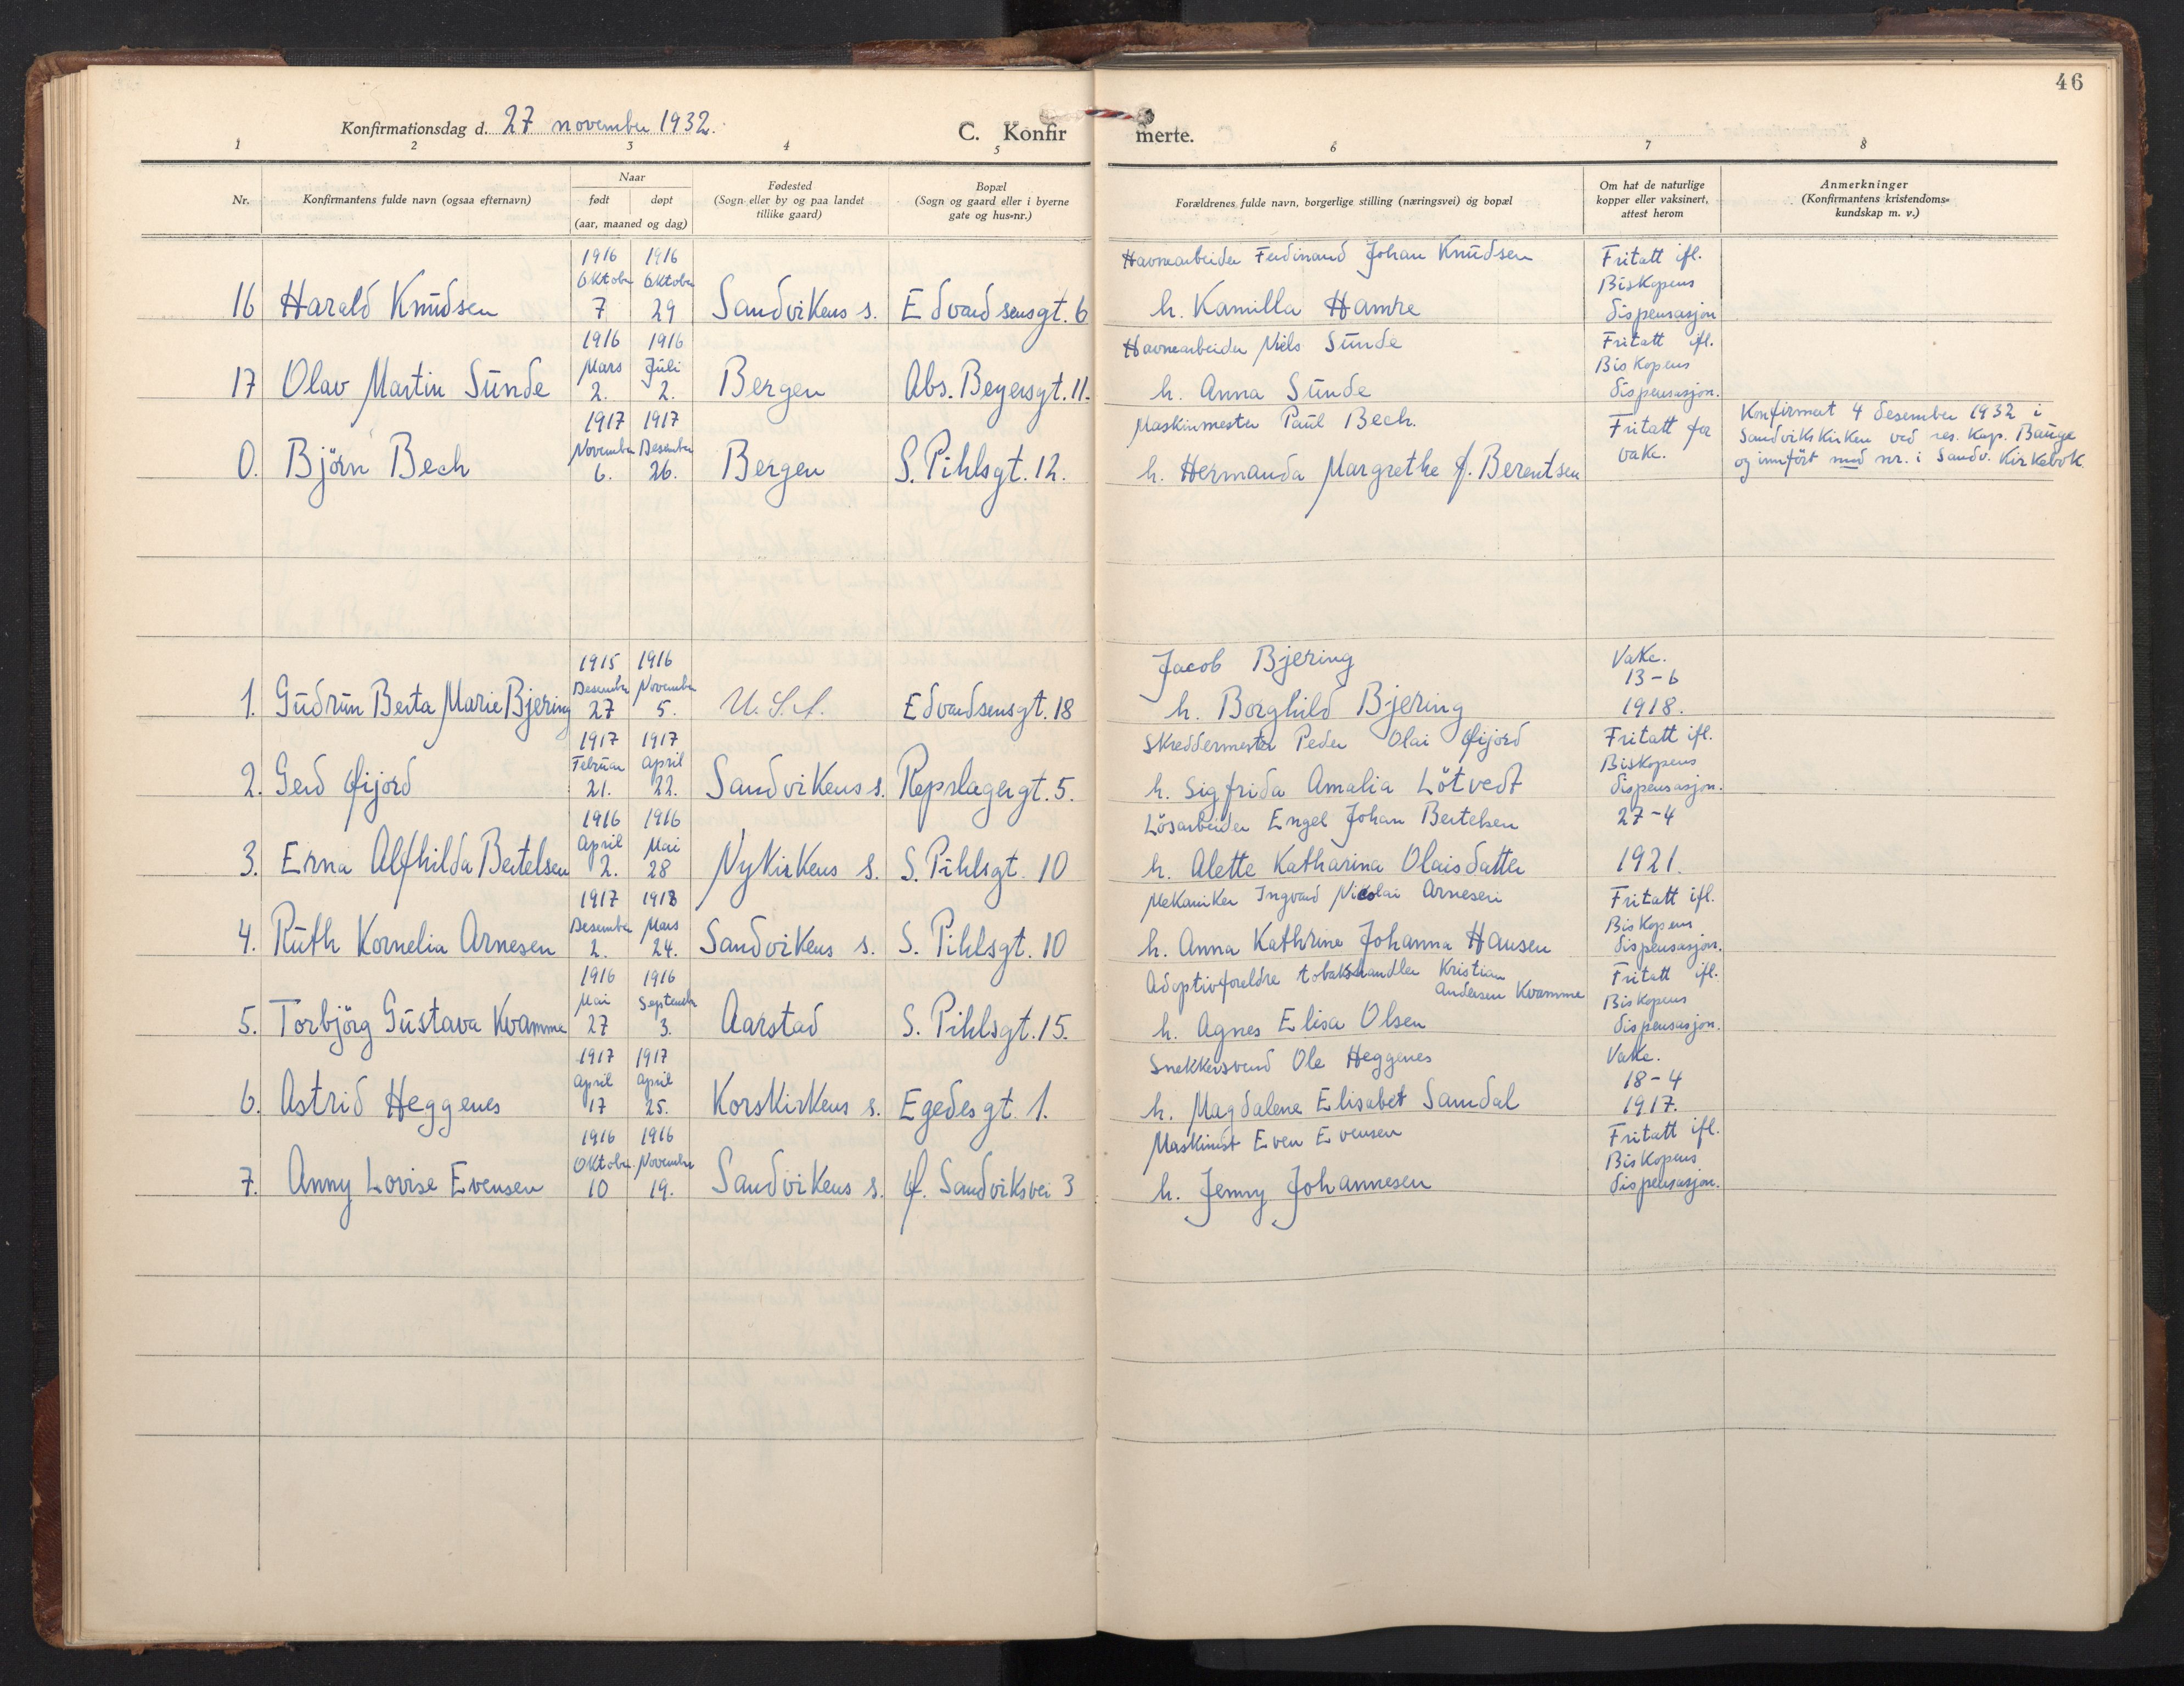 46
Konfirmationsdag d. 27 november 1932.
C. Konfirmerte.
1 2 3 4 5 6 7 8
Nr.
Konfirmantens fulde navn (ogsaa efternavn)
Naar
født
døpt
(aar, maaned og dag)
Fødested
(Sogn eller by og paa landet
tillike gaard)
Bopæl
(Sogn og gaard eller i byerne
gate og hus-nr.)
Forældrenes fulde navn, borgerlige stilling (næringsvei) og bopæl
Om hat de naturlige
kopper eller vaksinert,
attest herom
Anmerkninger
(Konfirmantens kristendoms-
kundskap m. v.)
1916 1916 Havnearbeider Ferdinand Johan Knudsen Fritatt ifl.
Oktober Oktober Biskopens
16 Harald Knudsen 7 29 Sandvikens s. Edvardsensgt. 6 h. Kamilla Hamre dispensasjon
1916 1916 Havnearbeider Niels Sunde Fritatt ifl.
Mars Juli Biskopens
17 Olav Martin Sunde 2. 2. Bergen Abs. Beyersgt. 11. h. Anna Sunde dispensasjon.
1917 1917 Maskinmester Paul Bech. Fritatt for Konfirmert 4 desember 1932 i
November Desember vakc. Sandvikskirken ved res. kap. Bauge
0. Björn Bech 6. 26. Bergen S. Pihlsgt. 12. h. Hermanda Margrethe f. Berentsen og innfört med nr. i Sandv. Kirkebok.
1915 1916 Jacob Bjering Vakc.
Desember November 13-6
1. Gudrun Berta Marie Bjering 27 5. U.S.A. Edvardsensgt. 18 h. Borghild Bjering 1918.
1917 1917 Skreddermester Peder Olai Øijord Fritatt ifl.
Februar April Biskopens
2. Gerd Øijord 21. 22. Sandvikens s. Repslagergt. 5. h. Sigfrida Amalia Lötvedt dispensasjon.
1916 1916 Lösarbeider Engel Johan Bertelsen 27-4
April Mai
3. Erna Alfhilda Bertelsen 2. 28 Nykirkens s. S. Pihlsgt. 10 h. Alette Katharina Olaisdatter 1921.
1917 1918 Mekaniker Ingvard Nicolai Arnesen Fritatt ifl.
Desember Mars Biskopens
4. Ruth Kornelia Arnesen 2. 24. Sandvikens s. S. Pihlsgt. 10 h. Anna Kathrine Johanna Hansen dispensasjon.
1916 1916 Adoptivforeldre tobakshandler Kristian Fritatt ifl.
Mai September Andersen Kvamme Biskopens
5. Torbjörg Gustava Kvamme 27 3. Aarstad S. Pihlsgt. 15. h. Agnes Elisa Olsen dispensasjon.
1917 1917 Snekkersvend Ole Heggenes Vakc.
April April 18-4
6. Astrid Heggenes 17 25. Korskirkens s. Egedesgt. 1. h. Magdalene Elisabet Samdal 1917.
1916 1916 Maskinist Even Evensen Fritatt ifl.
Oktober November Biskopens
7. Anny Lovise Evensen 10 19. Sandvikens s. Ø. Sandviksvei 3 h. Jenny Johannesen dispensasjon.